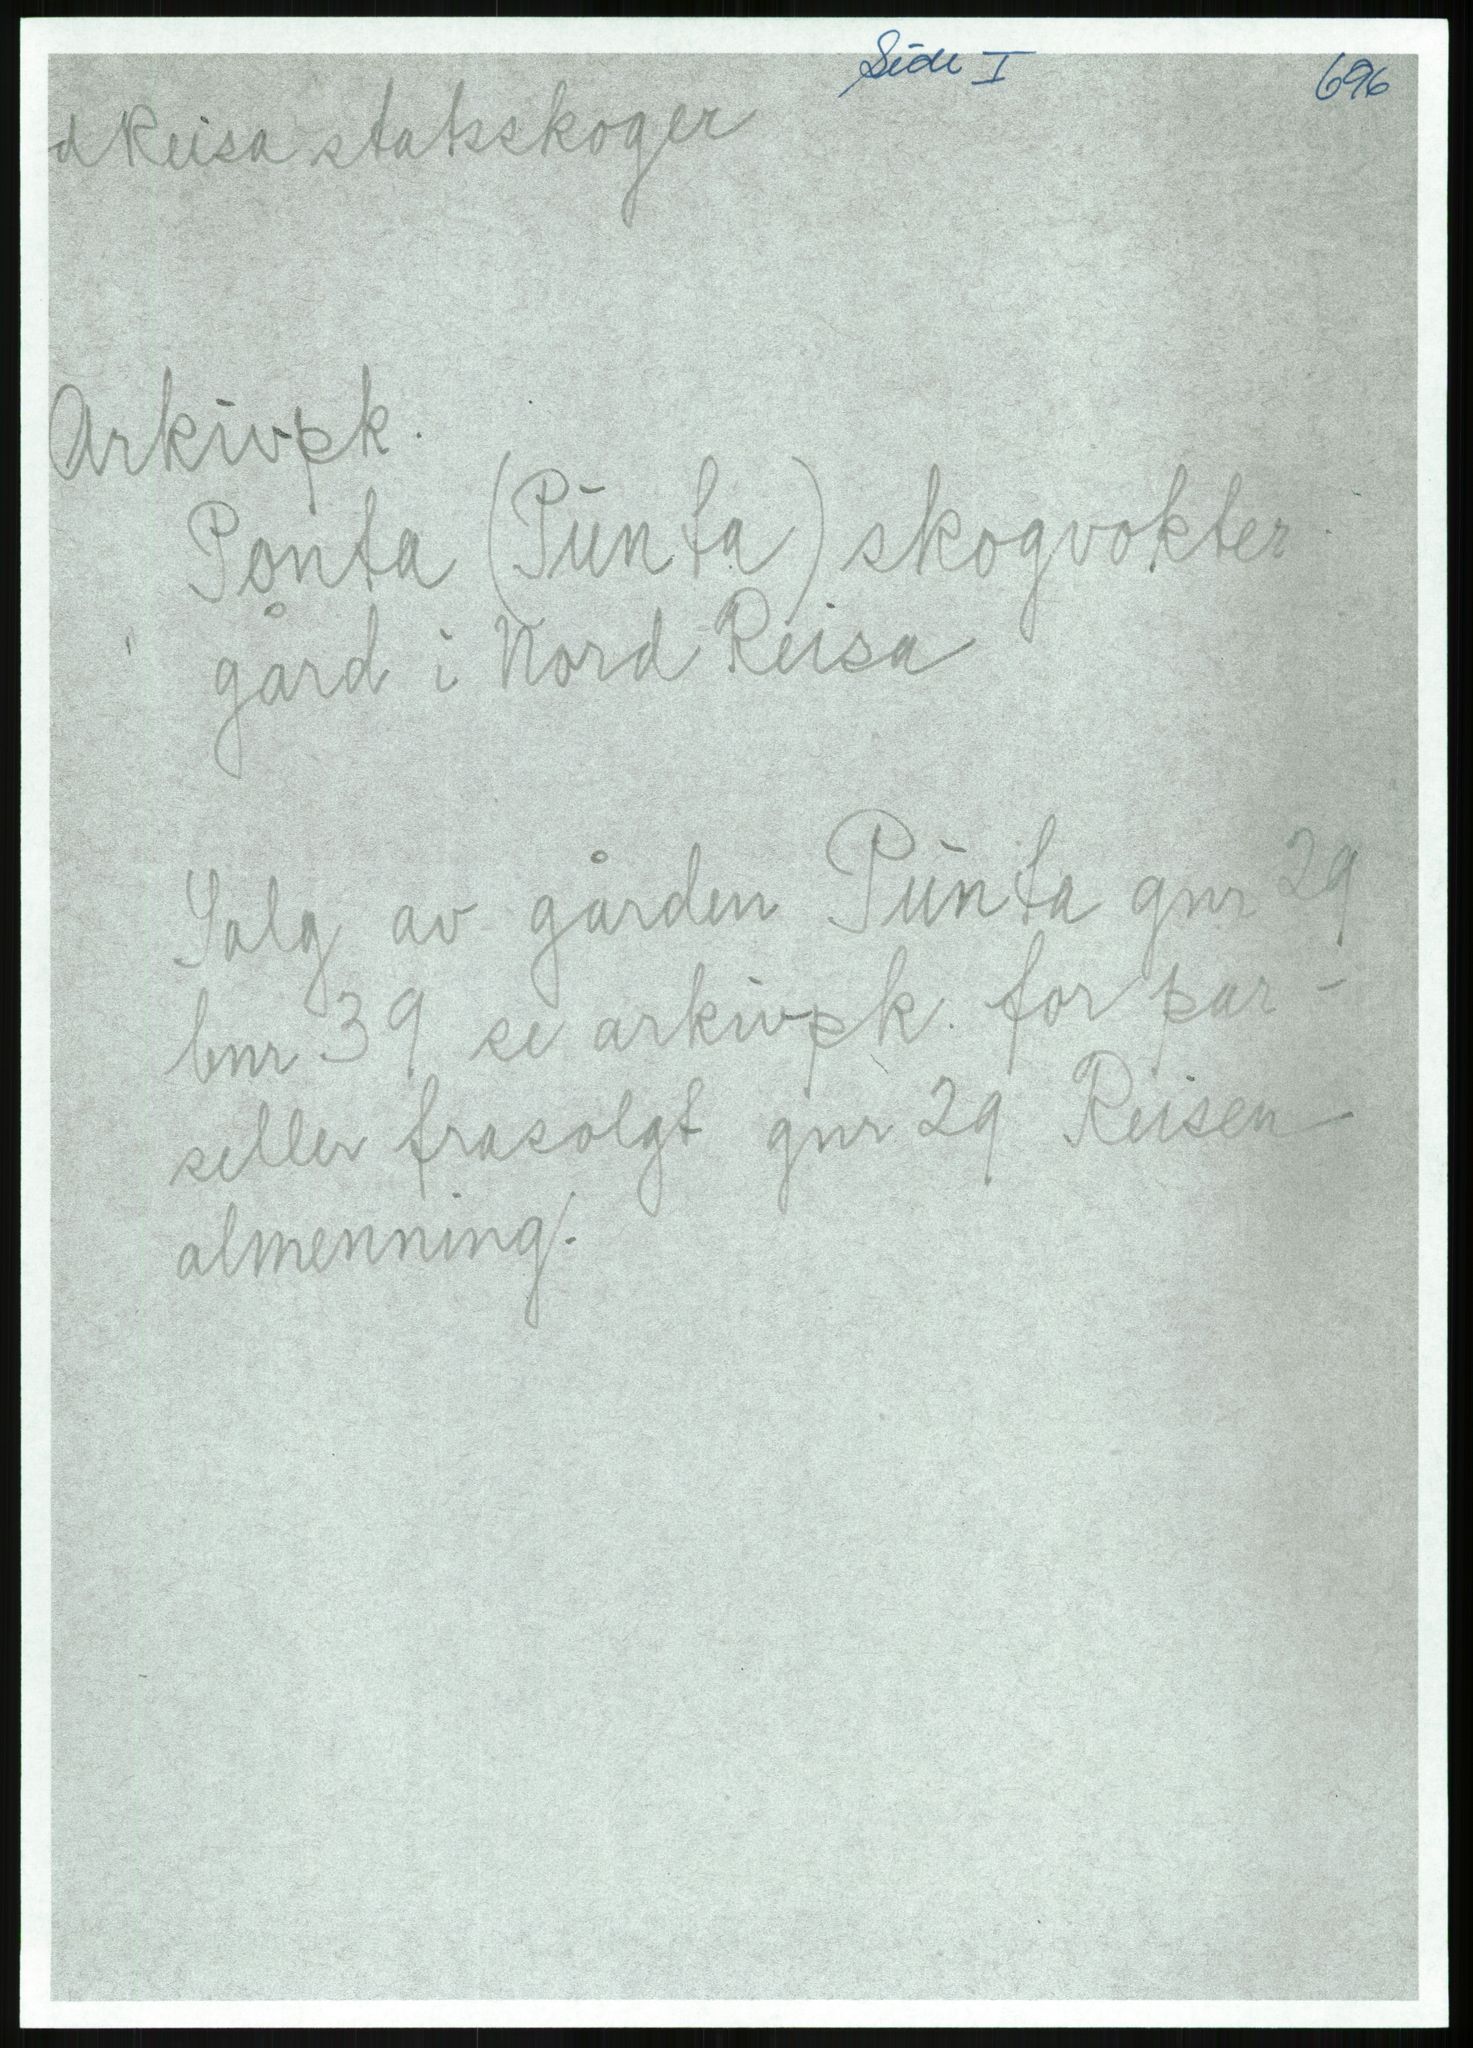 Side I
696
d Reisa statsskoger
Arkivpk.
Ponta (Punta) skogvokter
gård i Nord Reisa
Salg av gården Punta gnr 29
bnr 39 se arkivpk. for par-
seller frasolgt gnr 29 Reisen
almenning.